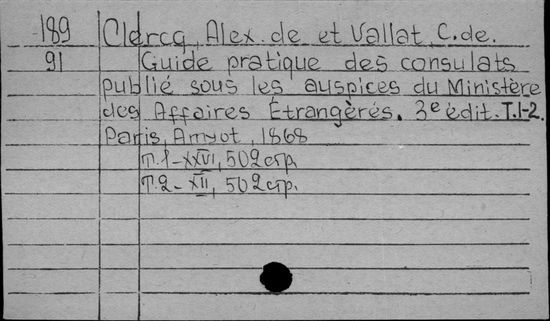 189 Clercq, Alex. de et Vallat, C. de.
91 Guide pratique des consulats
publié sous les auspices du Ministère
des Affaires Étrangérés. 3e édit. T.1-2.
Paris, Amyot, 1868
T.1-XXVI, 502 стр.
T.2-XII, 502 стр.